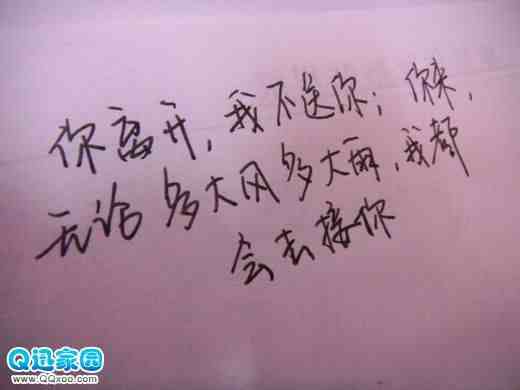 你离开，我不送你；你来，
无论多大风多大雨，我都
会去接你
Q迅家园
www.QQxoo.com